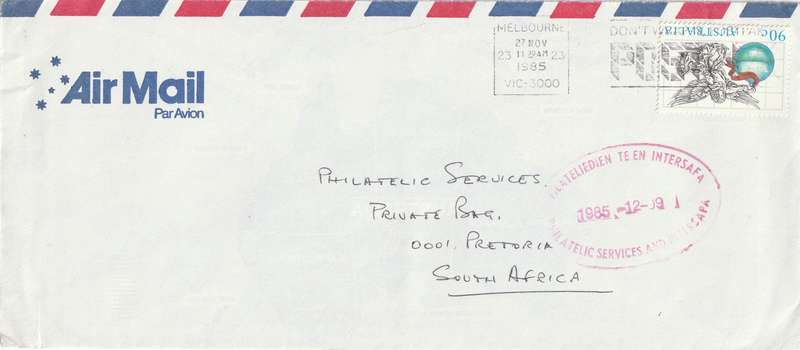 Air Mail
Par Avion
MELBOURNE
27 NOV
23 11 19AM 23
1985
VIC-3000
DON'T
POST
90c
AUSTRALIA
PHILATELIC SERVICES.
PRIVATE BAG.
0001. PRETORIA
SOUTH AFRICA
FILATELIEDIEN TE EN INTERSAFA
1985 -12- 09
PHILATELIC SERVICES AND INTERSAFA